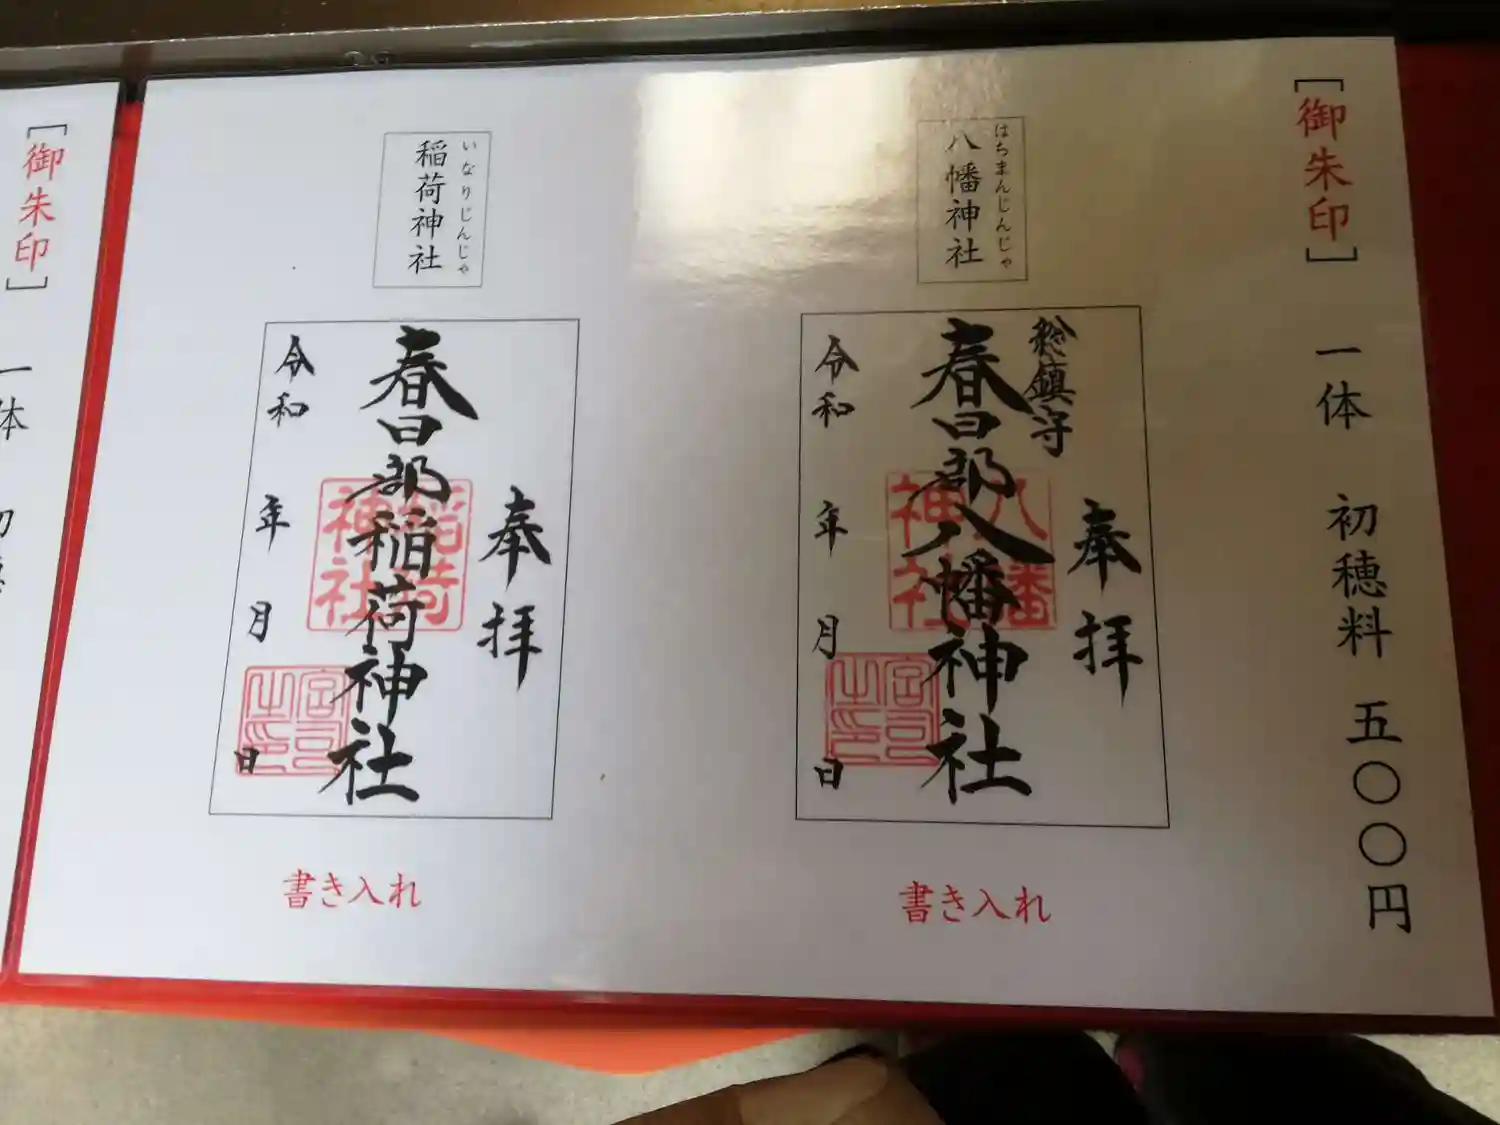 ［御朱印］ 一体 初穂料 五〇〇円
はちまんじんじゃ
八幡神社
総鎮守
奉拝
春日部八幡神社
八幡
神社
宮司
之印
令和 年 月 日
書き入れ
いなりじんじゃ
稲荷神社
奉拝
春日部稲荷神社
稲荷
神社
宮司
之印
令和 年 月 日
書き入れ
［御朱印］ 一体 初穂